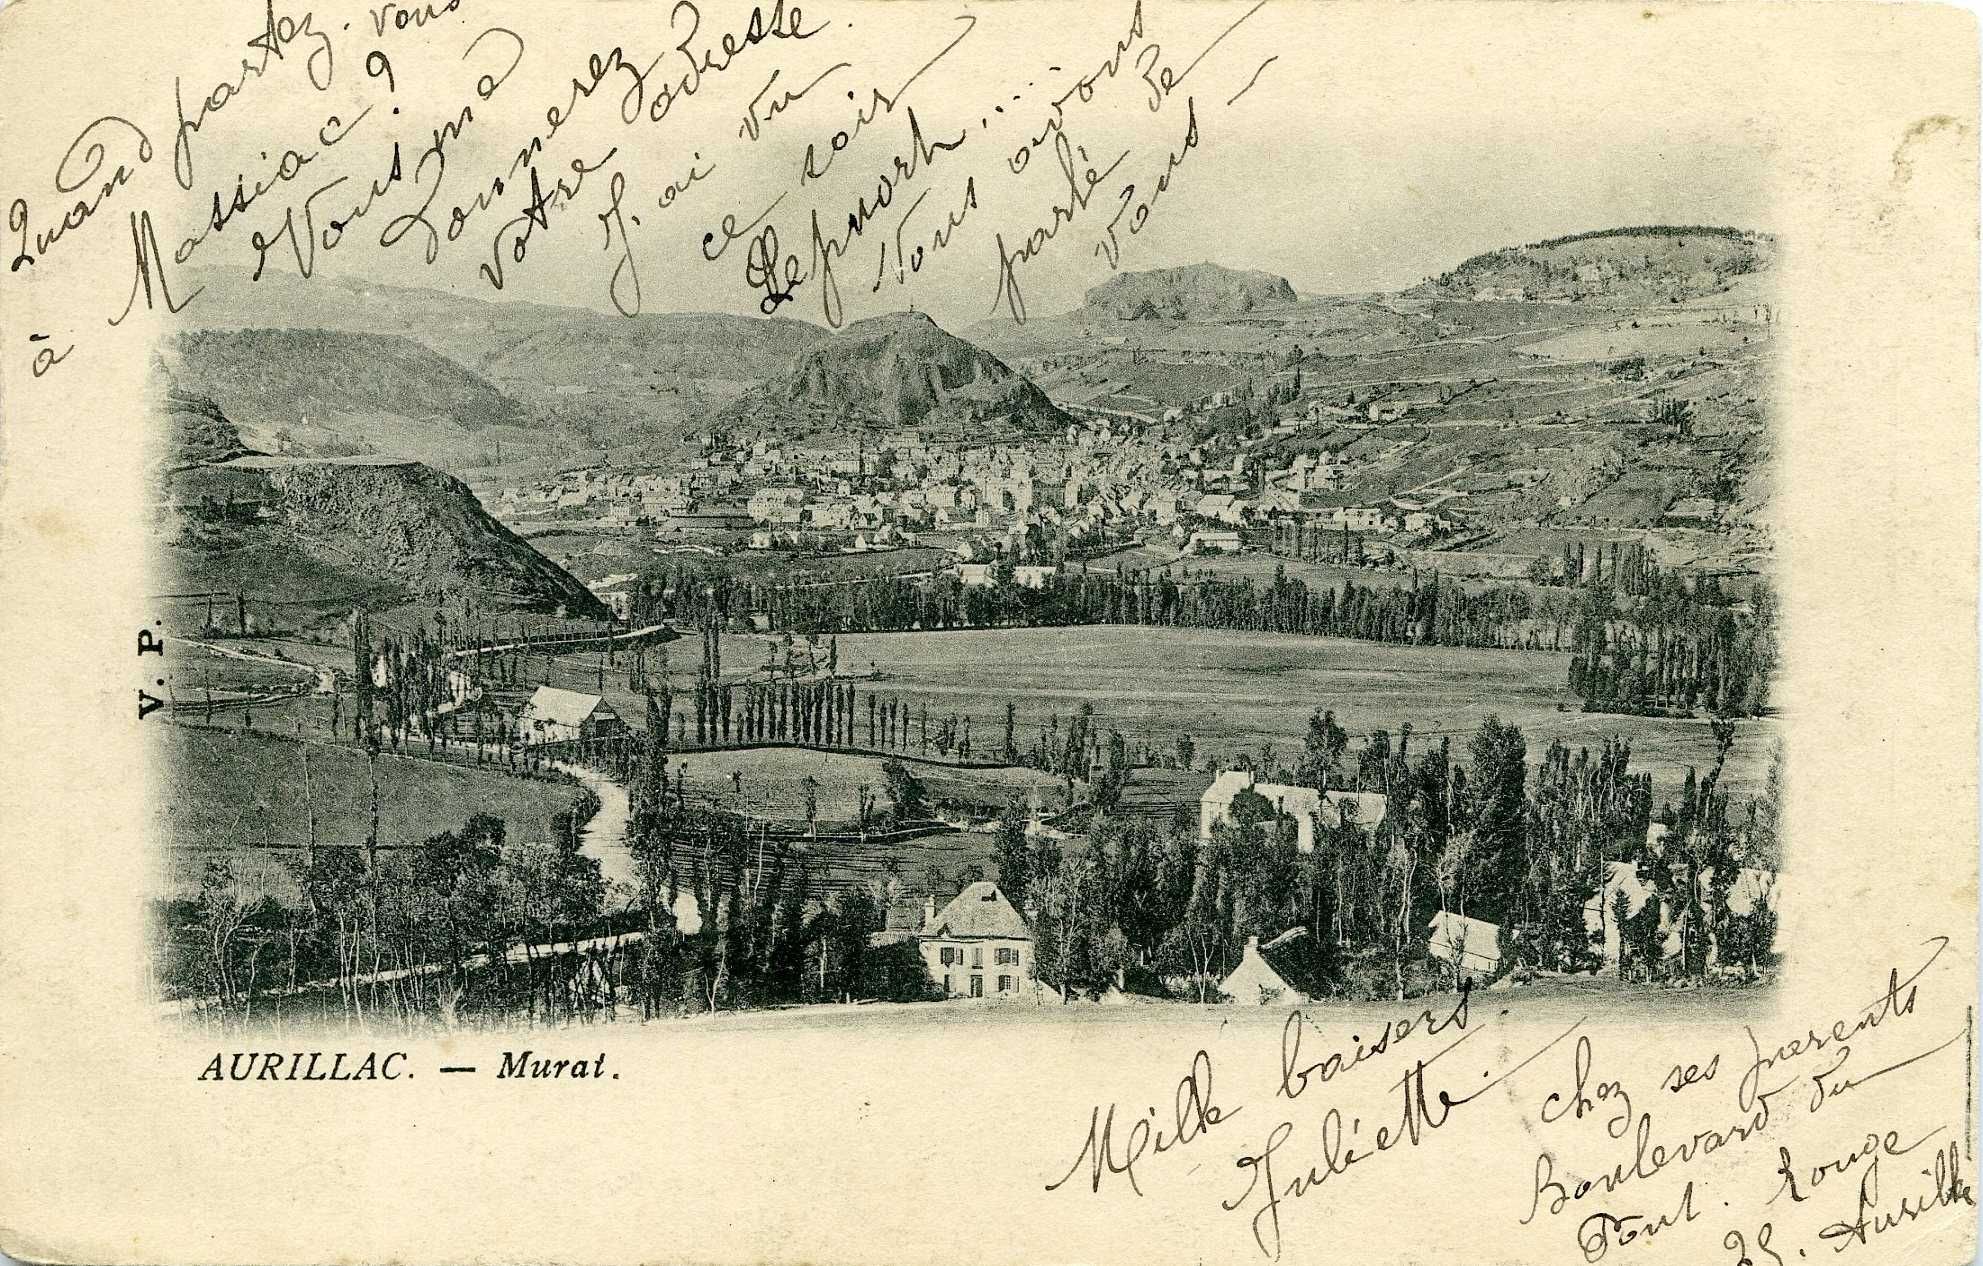 Quand partez-vous
à Massiac ?
Vous me
donnerez
votre adresse.
J'ai vu
ce soir
nous avons
parlé de
vous —
V. P.
AURILLAC. — Murat.
Mille baisers.
Juliette.
chez ses parents
Boulevard du
Pont. Rouge
25. Aurillac